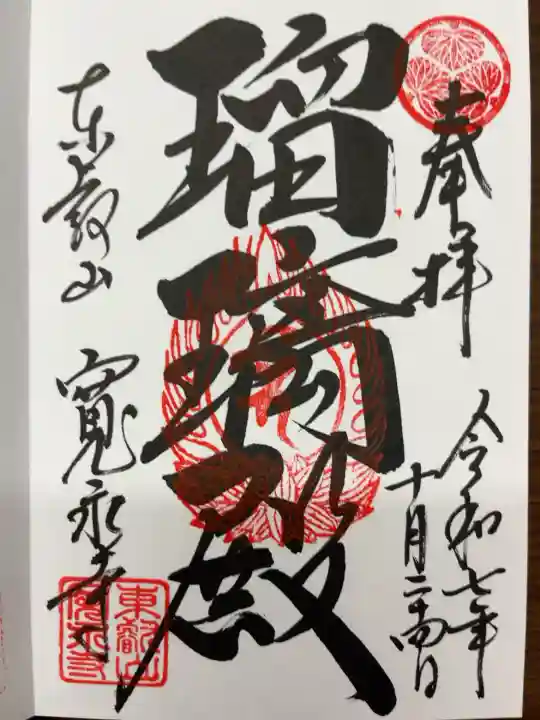 奉拝
令和七年
十月二十四日
瑠璃殿
東叡山
寛永寺
東叡山
寛永寺